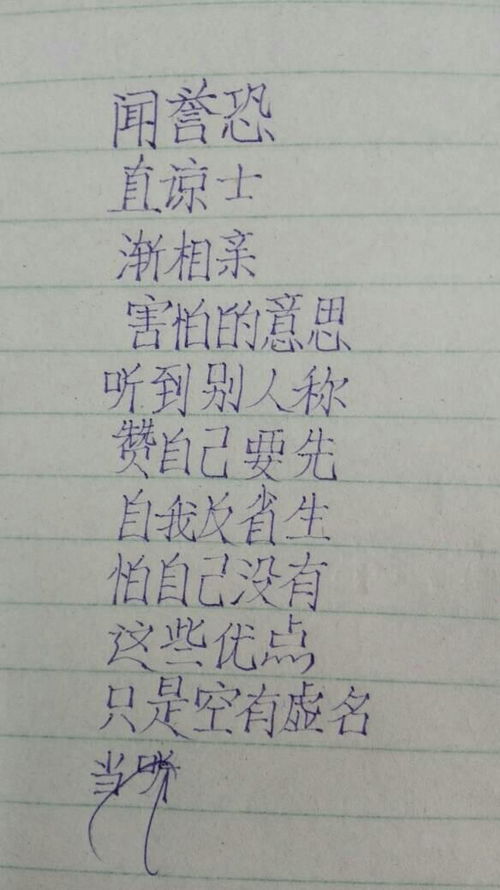 闻誉恐
直谅士
渐相亲
害怕的意思
听到别人称
赞自己要先
自我反省生
怕自己没有
这些优点
只是空有虚名
当听